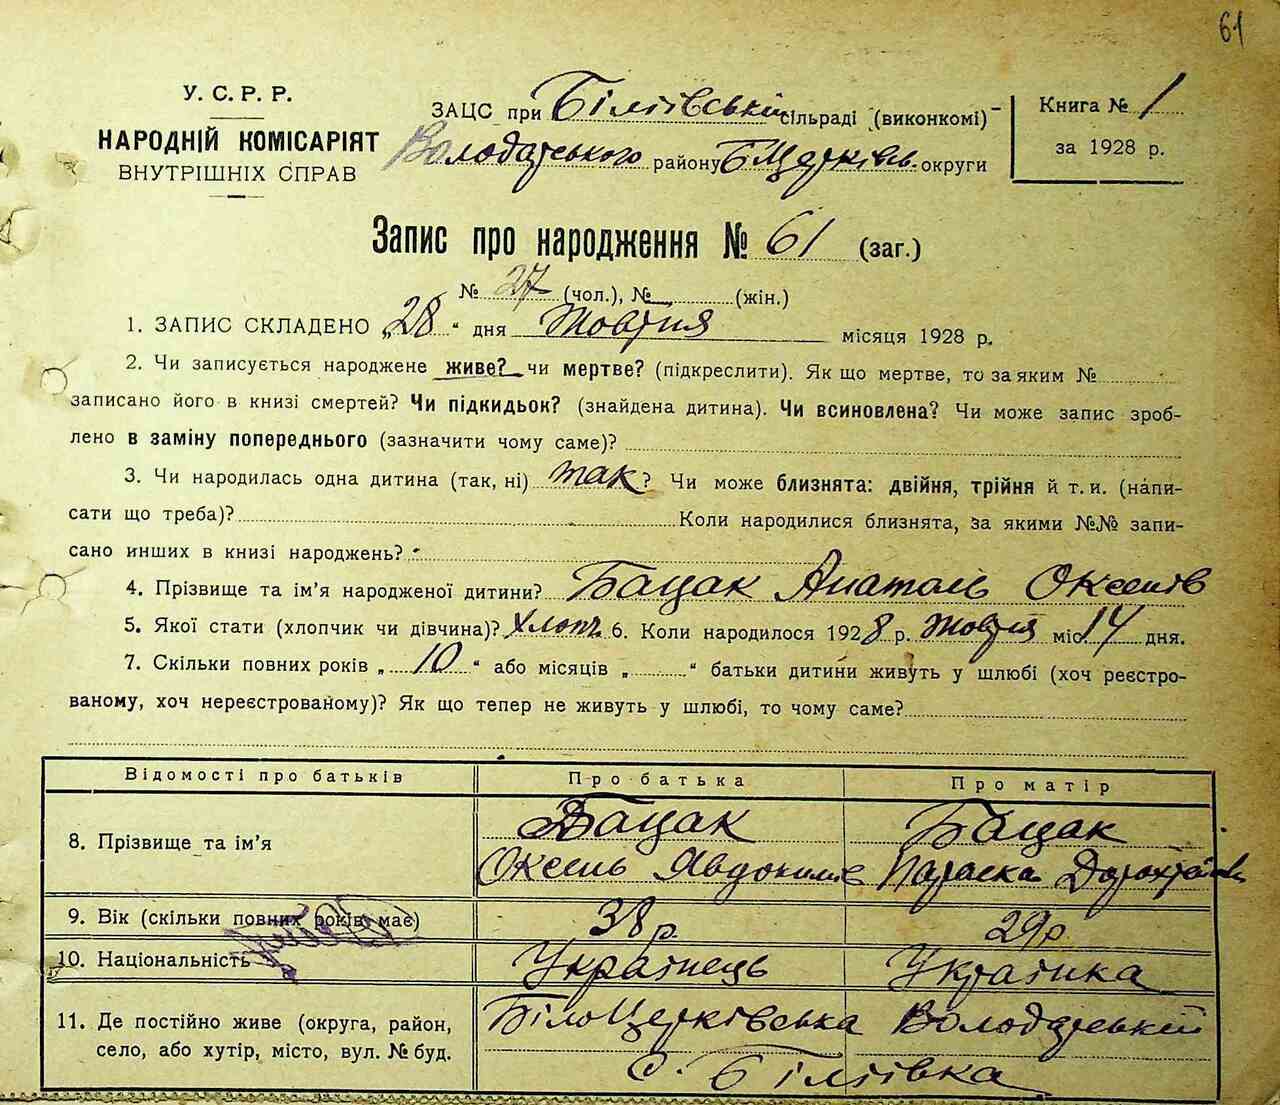 61
У. С. Р. Р.
НАРОДНІЙ КОМІСАРІЯТ
ВНУТРІШНІХ СПРАВ
ЗАЦС при Біліївській сільраді (виконкомі)
Володарського району Б Церківсь. округи
Книга № 1
за 1928 р.
Запис про народження № 61 (заг.)
№ 27 (чол.), № (жін.)
1. ЗАПИС СКЛАДЕНО „28“ дня Жовтня місяця 1928 р.
2. Чи записується народжене живе? чи мертве? (підкреслити). Як що мертве, то за яким №
записано його в книзі смертей? Чи підкидьок? (знайдена дитина). Чи всиновлена? Чи може запис зроб-
лено в заміну попереднього (зазначити чому саме)?
3. Чи народилась одна дитина (так, ні) так? Чи може близнята: двійня, трійня й т. и. (напи-
сати що треба)? Коли народилися близнята, за якими №№ запи-
сано инших в книзі народжень?
4. Прізвище та ім’я народженої дитини? Бацак Анатоль Оксенів
5. Якої стати (хлопчик чи дівчина)? Хлопч. 6. Коли народилося 1928 р. Жовтня міс. 14 дня.
7. Скільки повних років „10“ або місяців „ “ батьки дитини живуть у шлюбі (хоч реєстро-
ваному, хоч нереєстрованому)? Як що тепер не живуть у шлюбі, то чому саме?
Відомості про батьків Про батька Про матір
8. Прізвище та ім’я
Бацак Бацак
Оксень Явдокимів Параска
9. Вік (скільки повних років має) 38 р. 29 р.
10. Національність Українець Українка
11. Де постійно живе (округа, район,
село, або хутір, місто, вул. № буд.
Біло Церківська Володарський
с. Біліївка